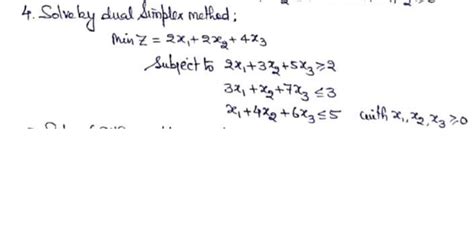 4. Solve by dual Simplex method;
Min Z = 2x₁+2x₂+4x₃
Subject to 2x₁+3x₂+5x₃≥2
3x₁+x₂+7x₃≤3
x₁+4x₂+6x₃≤5 with x₁,x₂,x₃≥0